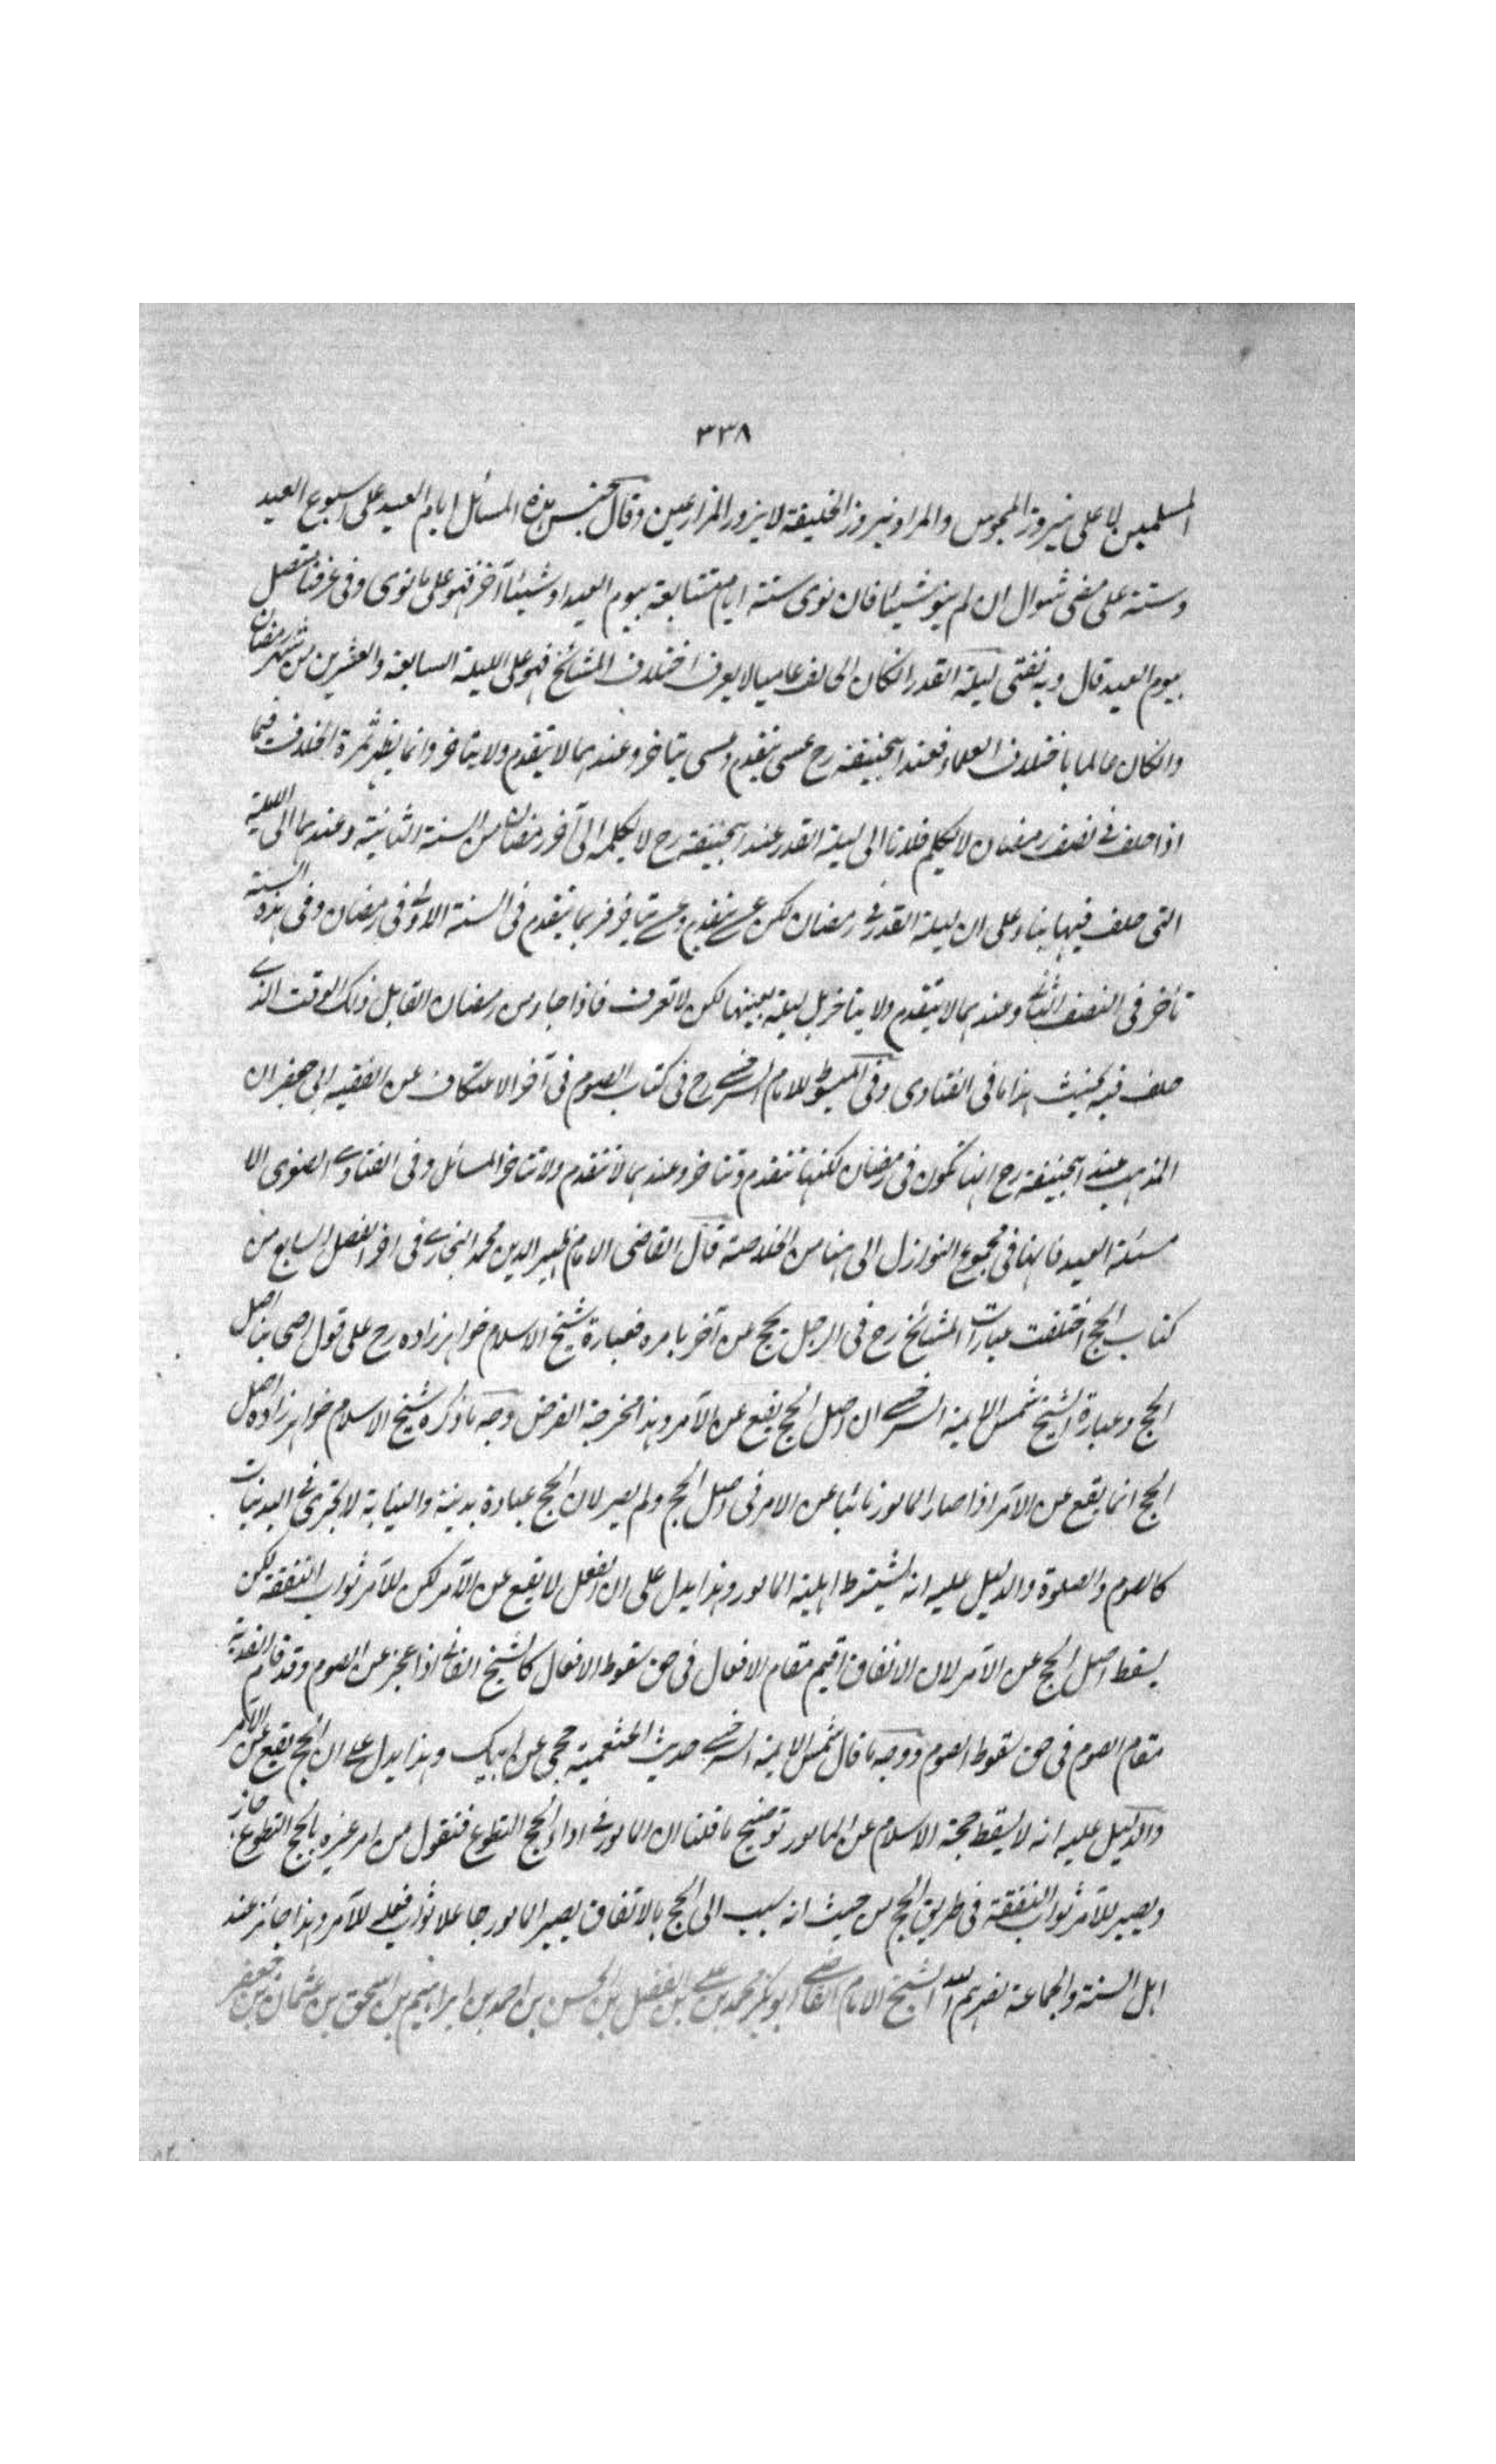 ٣٣٨
المسلمين لا على نيروز المجوس والمراد نيروز الخليفة لا نيروز المزارعين وقال بجنس هذه المسائل ايام العيد على اسبوع العيد
وستة على مضى شوال ان لم ينو شيئا فان نوى ستة ايام متتابعة بيوم العيد او شيئا آخر فهو على ما نوى وفى عرفنا يتصل
بيوم العيد قال وبه نفتى ليلة القدر انكان الحالف عاميا لا يعرف اختلاف المشائخ فهو على الليلة السابعة والعشرين من شهر رمضان
وانكان عالما باختلاف العلماء فعند ابيحنيفة رح عسى يتقدم وعسى يتاخر وعندهما لا يتقدم ولا يتاخر وانما يظهر ثمرة الخلاف فيما
اذا حلف فى نصف رمضان لا يكلم فلانا الى ليلة القدر عند ابيحنيفة رح لا يكلمه الى آخر رمضان من السنة الثانية وعندهما الى الليلة
التى حلف فيها بناء على ان ليلة القدر فى رمضان لكن عسى يتقدم وعسى يتاخر فربما يتقدم فى السنة الاولى فى رمضان وفى هذه السنة
تأخر فى النصف الثانى وعندهما لا يتقدم ولا يتاخر بل ليلة بعينها لكن لا تعرف فاذا جاء من رمضان القابل ذلك الوقت الذى
حلف فيه يحنث هذا ما فى الفتاوى وفى المبسوط للامام السرخسى رح فى كتاب الصوم فى آخر الاعتكاف عن الفقيه ابى جعفر ان
المذهب عند ابيحنيفة رح انها تكون فى رمضان لكنها تتقدم وتتاخر وعندهما لا تتقدم ولا تتاخر المسائل وفى الفتاوى الصغرى الا
مسئلة العيد فانها فى مجموع النوازل الى هنا من الخلاصة قال القاضى الامام ظهير الدين محمد البخارى فى اخر الفصل السابع من
كتاب الحج اختلفت عبارات المشائخ رح فى الرجل يحج عن آخر بامره فعبارة شيخ الاسلام خواهر زاده رح على قول اصحابنا اصل
الحج وعبارة الشيخ شمس الايمة السرخسى ان اصل الحج يقع عن الآمر وهذا مخرجة الفرض وجه ما ذكره شيخ الاسلام خواهر زاده اصل
الحج انما يقع عن الآمر اذا صار المامور نائبا عن الامر فى اصل الحج ولم يصر لان الحج عبادة بدنية والنيابة لا تجزى فى البدنيات
كالصوم والصلوة والدليل عليه انه يشترط اهلية المامور وهذا يدل على ان الفعل لا يقع عن الآمر لكن للآمر ثواب النفقة لكن
يسقط اصل الحج عن الآمر لان الانفاق اقيم مقام الافعال فى حق سقوط الافعال كالشيخ الفانى اذا عجز عن الصوم وقد قام الفدية
مقام الصوم فى حق سقوط الصوم ووجه ما قال شمس الايمة السرخسى حديث الخثعمية حجى عن ابيك وهذا يدل على ان الحج يقع عن الآمر
والدليل عليه انه لا يسقط حجة الاسلام عن المامور توضيح ما قلنا ان المامور فى اداء الحج التطوع فنقول من امر غيره بالحج التطوع جاز
ويصير للآمر ثواب النفقة فى طريق الحج من حيث انه سبب الى الحج بالاتفاق يصير المامور جاعلا ثواب فعله للآمر وهذا جائز عند
اهل السنة والجماعة نصرهم الله الشيخ الامام القاضى ابو بكر محمد بن على بن الفضل بن الحسن بن احمد بن ابراهيم بن اسحق بن عثمان بن جعفر